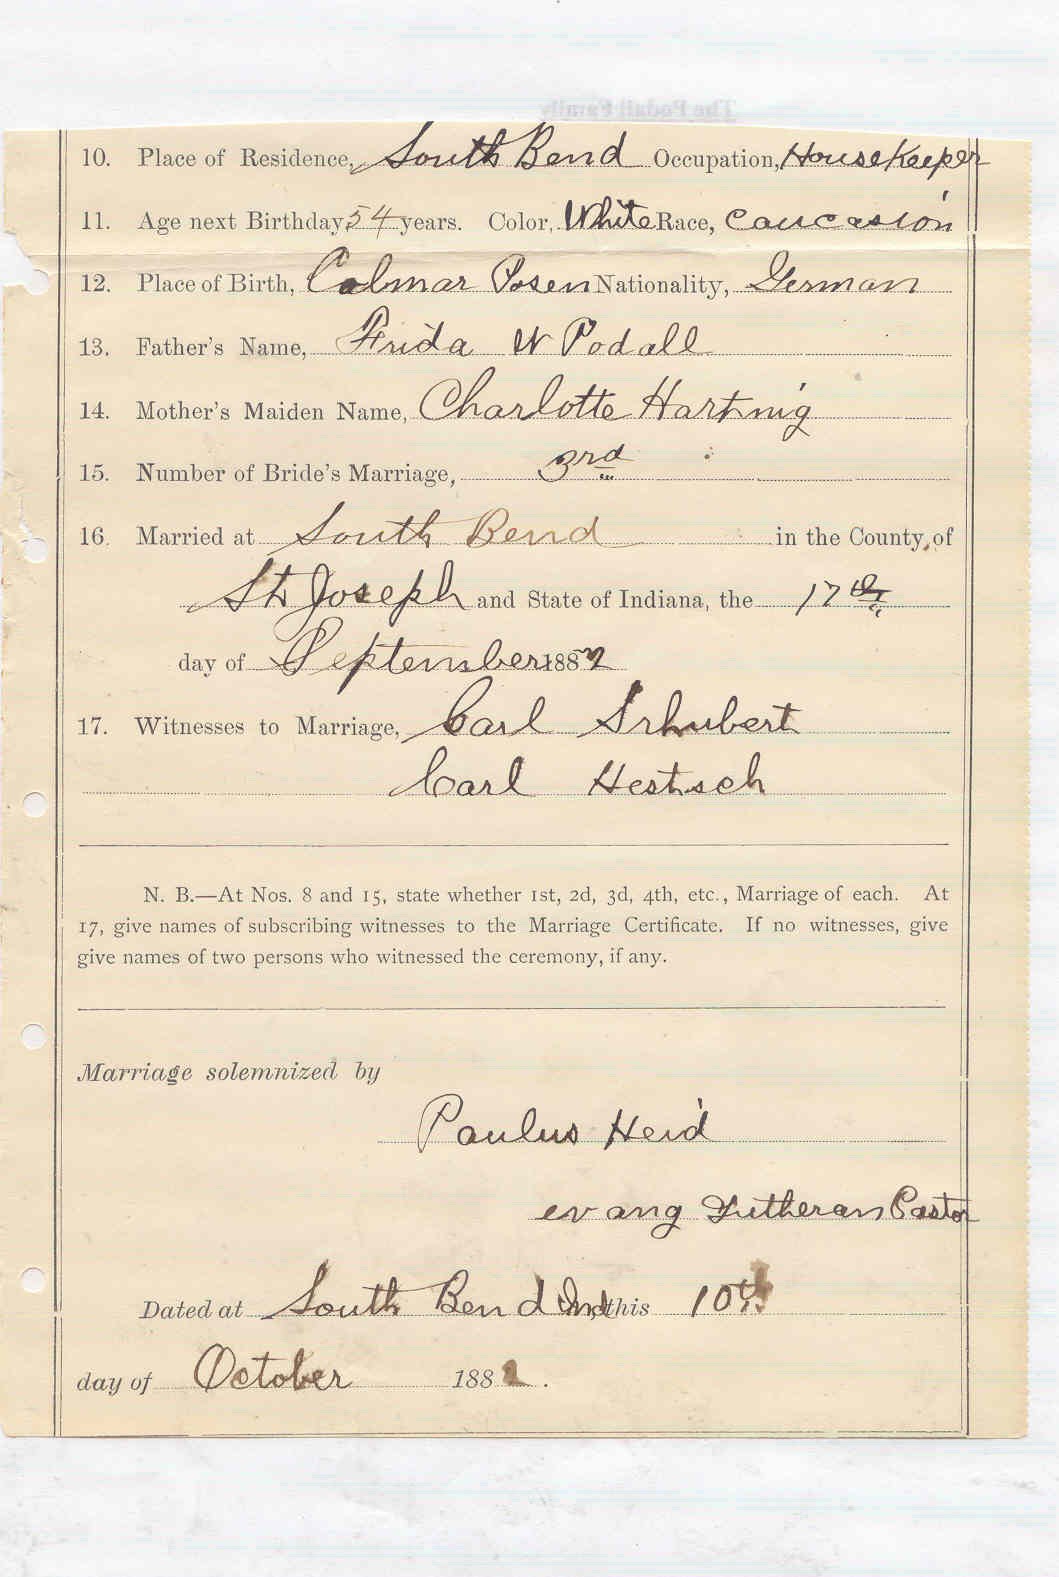 The Podall Family
10. Place of Residence, South Bend Occupation, HouseKeeper
11. Age next Birthday 54 years. Color, White Race, Caucasion
12. Place of Birth, Colmar Posen Nationality, German
13. Father's Name, Frida W Podall
14. Mother's Maiden Name, Charlotte Hartnig
15. Number of Bride's Marriage, 3rd
16. Married at South Bend in the County, of
St Joseph and State of Indiana, the 17th
day of September 1882
17. Witnesses to Marriage, Carl Srhubert
Carl Hestsch
N. B.—At Nos. 8 and 15, state whether 1st, 2d, 3d, 4th, etc., Marriage of each. At
17, give names of subscribing witnesses to the Marriage Certificate. If no witnesses, give
give names of two persons who witnessed the ceremony, if any.
Marriage solemnized by
Paulus Heid
evang Lutheran Pastor
Dated at South Bend Ind, this 10th
day of October 1882.